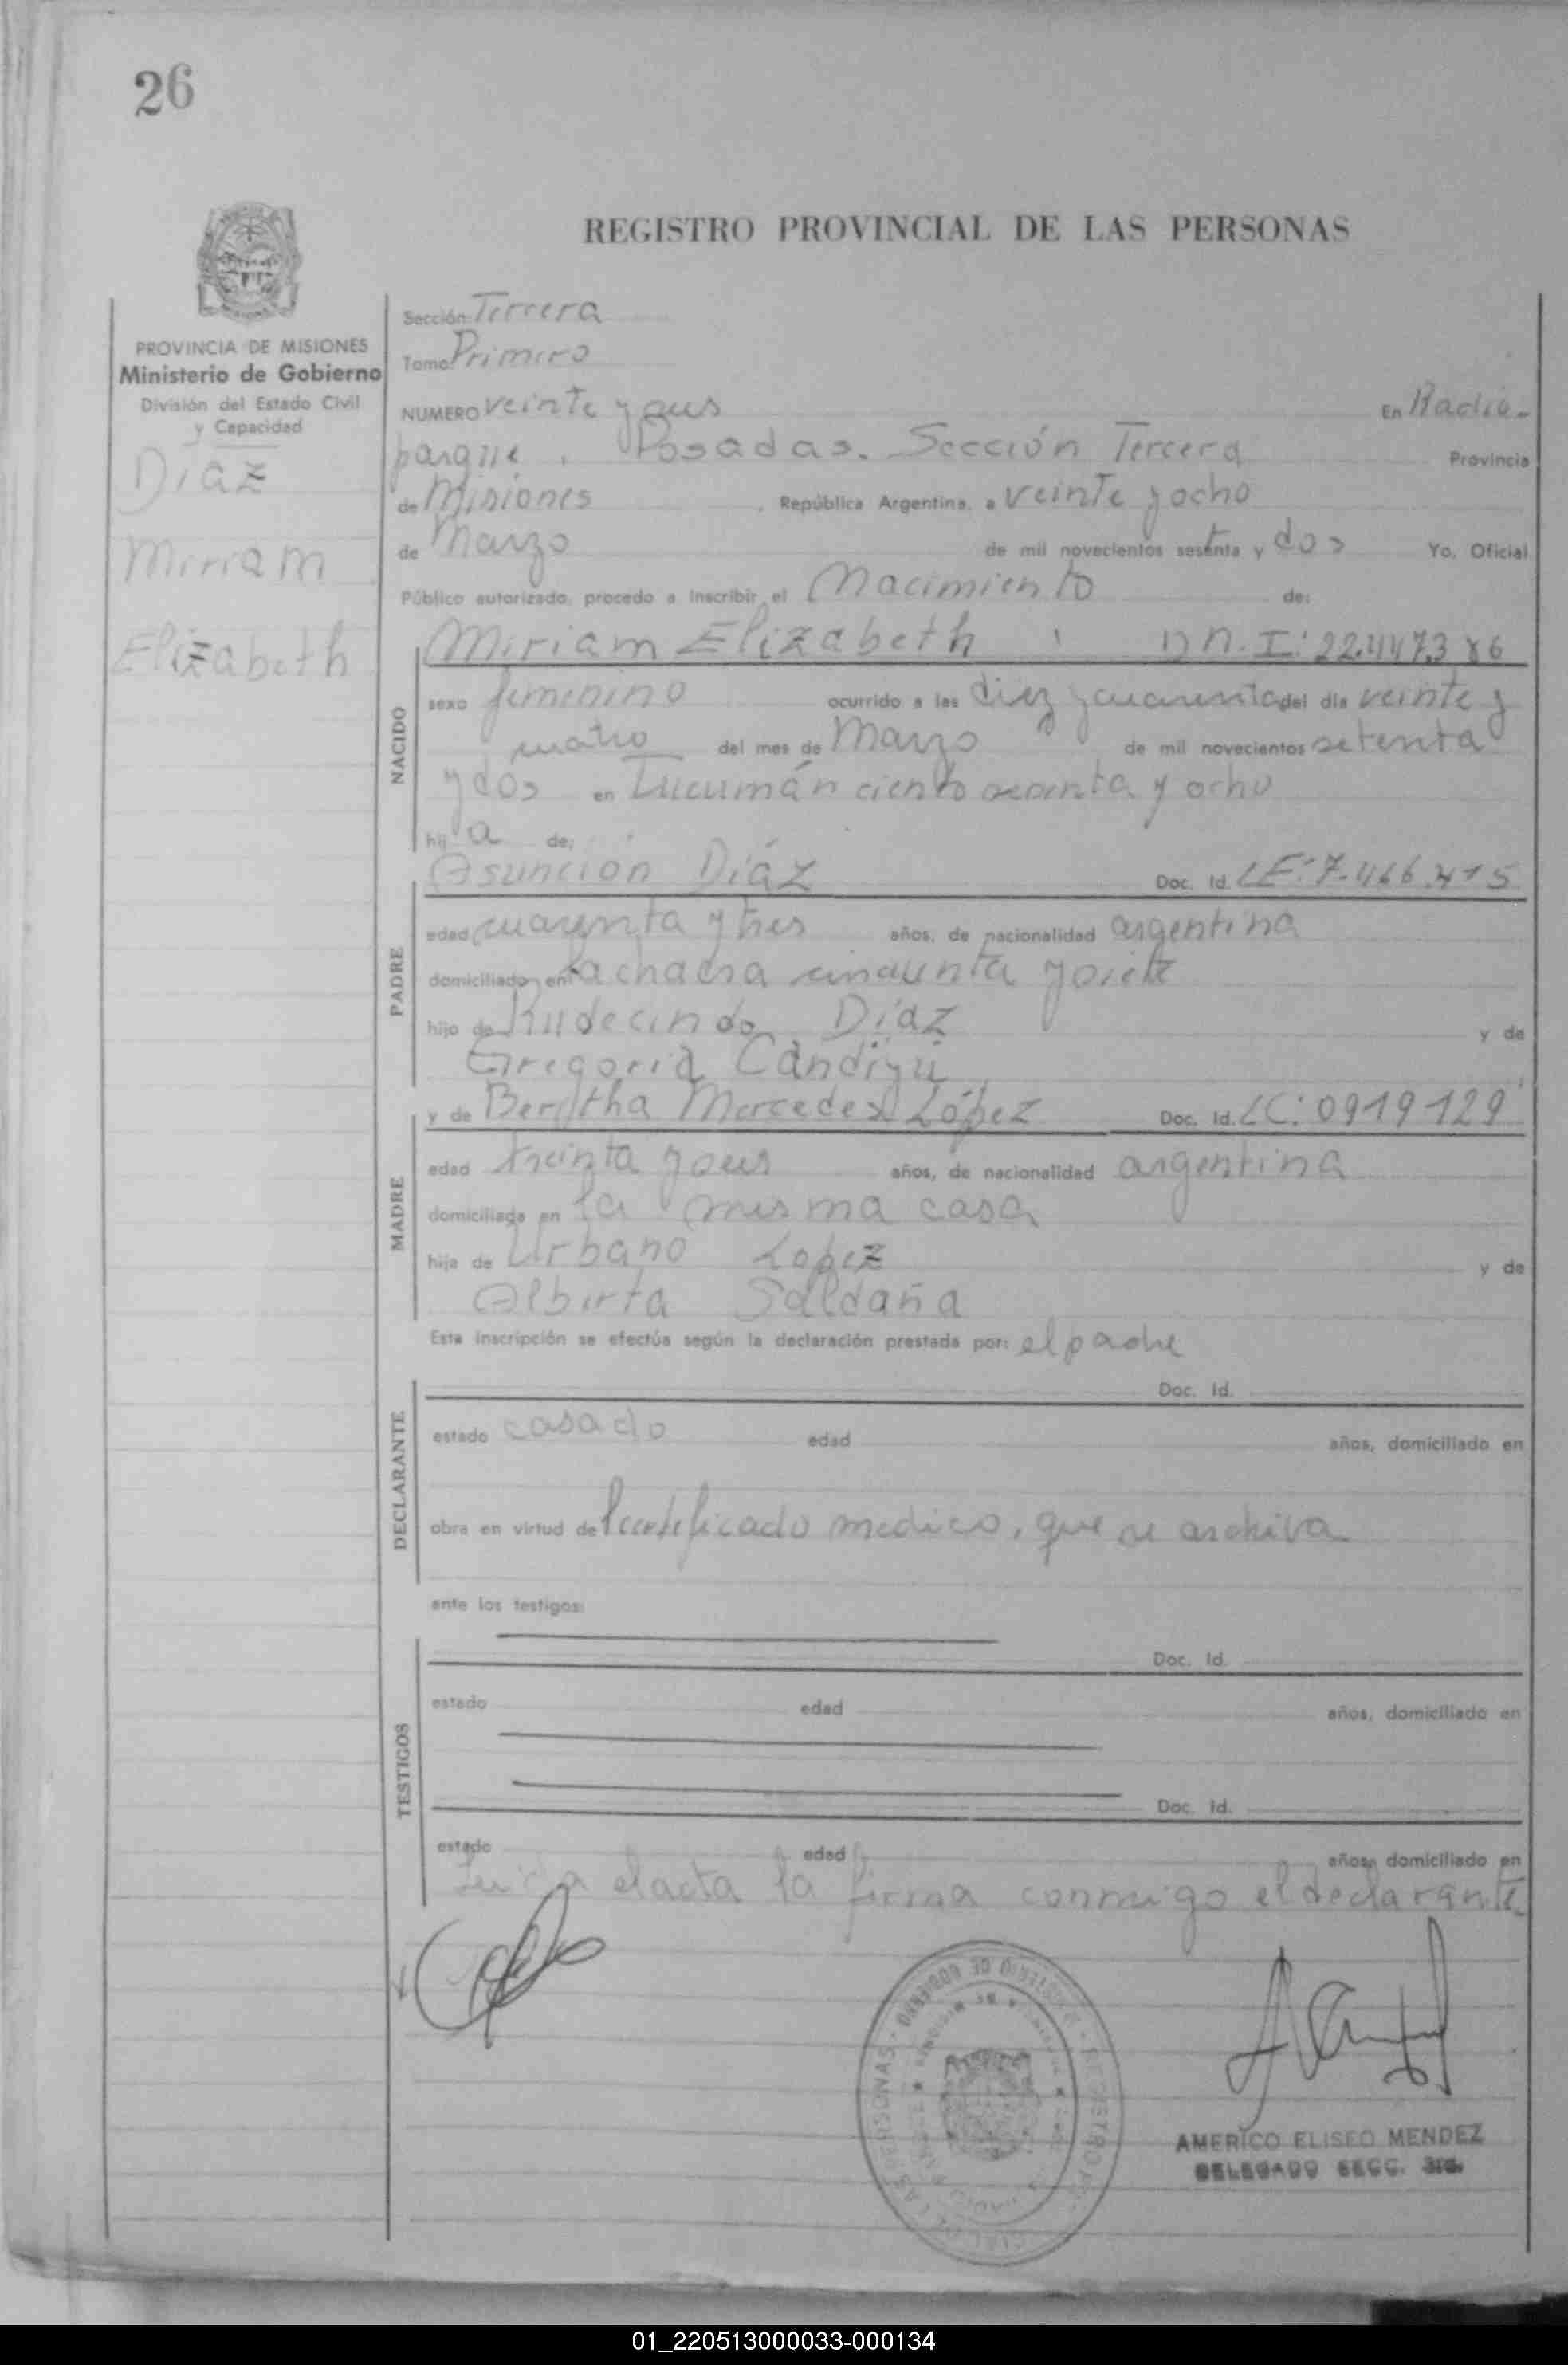 26
REGISTRO PROVINCIAL DE LAS PERSONAS
PROVINCIA DE MISIONES
Ministerio de Gobierno
División del Estado Civil
y Capacidad
Díaz
Miriam
Elizabeth
Sección: Tercera
Tomo: Primero
NUMERO veinte y seis En Radio-
parque. Posadas. Sección Tercera Provincia
de Misiones, República Argentina, a veinte y ocho
de Marzo de mil novecientos setenta y dos Yo, Oficial
Público autorizado, procedo a inscribir el Nacimiento de:
NACIDO
Miriam Elizabeth D N. I: 22.447.386
sexo femenino ocurrido a las diez y cuarenta del día veinte y
cuatro del mes de Marzo de mil novecientos setenta
y dos en Tucumán ciento y ocho
hij a de:
PADRE
Asunción Díaz Doc. Id. LE: 7.466.415
edad cuarenta y tres años, de nacionalidad argentina
domiciliado en la chacra cincuenta y siete
hijo de Rudecindo Díaz y de
Gregoria Candiyú
MADRE
y de Bertha Mercedes López Doc. Id. LC: 0919129
edad treinta y seis años, de nacionalidad argentina
domiciliada en la misma casa
hija de Urbano Lopez y de
Alberta Saldaña
Esta inscripción se efectúa según la declaración prestada por: el padre
DECLARANTE
Doc. Id.
estado casado edad años, domiciliado en
obra en virtud de certificado medico, que se archiva
ante los testigos:
TESTIGOS
Doc. Id.
estado edad años, domiciliado en
Doc. Id.
estado edad años, domiciliado en
Leida el acta la firma conmigo el declarante
AMERICO ELISEO MENDEZ
DELEGADO SECC. 3ra.
01_220513000033-000134